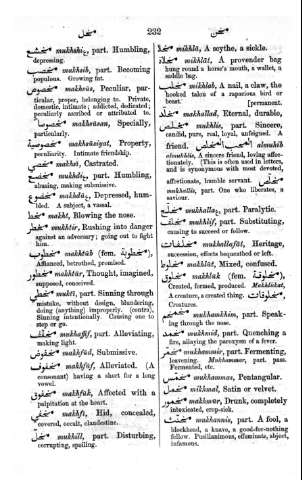 مخل
232
مخن
مخشع mukhshi, part. Humbling,
depressing.
مخصب mukhsib, part. Becoming
populous. Growing fat.
مخصوص makhsūs, Peculiar, par-
ticular, proper, belonging to. Private,
domestic, intimate; addicted, dedicated;
peculiarly ascribed or attributed to.
مخصوصاً makhsūsan, Specially,
particularly.
مخصوصية makhsūsiyat, Property,
peculiarity. Intimate friendship.
makhsī, Castrated.
part. Humbling,
abasing, making submissive.
Depressed, hum-
bled. A subject, a vassal.
مخط makht, Blowing the nose.
Rushing into danger
against an adversary; going out to fight
him.
مخطوب makhtūb (fem. مخطوبة),
Affianced, betrothed, promised.
مخطور makhtūr, Thought, imagined,
supposed, conceived.
مخطي mukhtī, part. Sinning through
mistake, without design, blundering,
doing (anything) improperly, (contra),
Sinning intentionally. Causing one to
step or go.
مخفف mukhaffif, part. Alleviating,
making light.
مخفوض makhfūd, Submissive.
مخفوف makhfūf, Alleviated. (A
consonant) having a short for a long
vowel.
مخفوق makhfūk, Affected with a
palpitation at the heart.
مخفي makhfī, Hid, concealed,
covered, occult, clandestine.
مخل mukhill, part. Disturbing,
corrupting, spoiling.
مخلاة mikhlā, A scythe, a sickle.
مخلاة mikhlāt, A provender bag
hung round a horse's mouth, a wallet, a
saddle bag.
مخلب mikhlab, A nail, a claw, the
hooked talon of a rapacious bird or
beast. [permanent.
مخلد mukhallad, Eternal, durable,
مخلص mukhlis, part. Sincere,
candid, pure, real, loyal, unfeigned. A
friend.
almukhlis, A sincere friend, loving affec-
tionately. (This is often used in letters,
and is synonymous with most devoted,
affectionate, humble servant. مخلص
mukhallis, part. One who liberates, a
saviour.
مخلع mukhalla, part. Paralytic.
مخلف mukhlif, part. Substituting,
causing to succeed or follow.
مخلفات mukhallafāt, Heritage,
succession, effects bequeathed or left.
مخلوط makhlūt, Mixed, confused.
مخلوق makhlūk (fem. مخلوقة),
Created, formed, produced. Makhlūkat,
A creature, a created thing. مخلوقات,
Creatures.
part. Speak-
ing through the nose.
مخمد mukhmid, part. Quenching a
fire, allaying the paroxysm of a fever.
مخمر mukhammir, part. Fermenting,
leavening. Mukhammar, part. pass.
Fermented, etc.
مخمس mukhammas, Pentangular.
مخمل mikhmal, Satin or velvet.
مخمور makhmūr, Drunk, completely
intoxicated, crop-sick.
مخنث mukhannis, part. A fool, a
blockhead, a knave, a good-for-nothing
fellow. Pusillanimous, effeminate, abject,
infamous.